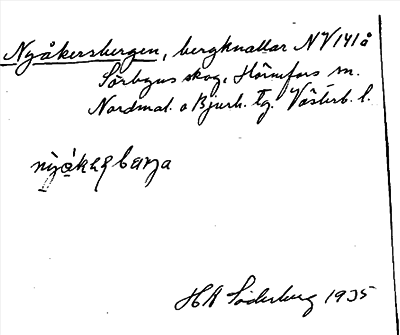 Nyåkersbergen, bergknallar NV 141 å
Sörbyns skog, Hörnefors sn.
Nordmal. o Bjurh. tg. Västerb. l.
H A Söderberg 1935